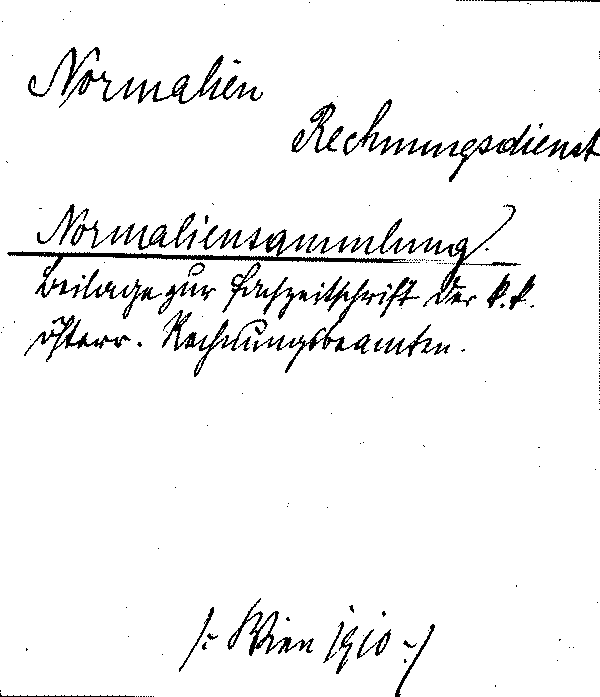 Normalien
Rechnungsdienst
Normaliensammlung.
Beilage zur Fachzeitschrift der k.k.
österr. Rechnungsbeamten.
/: Wien 1910 :/